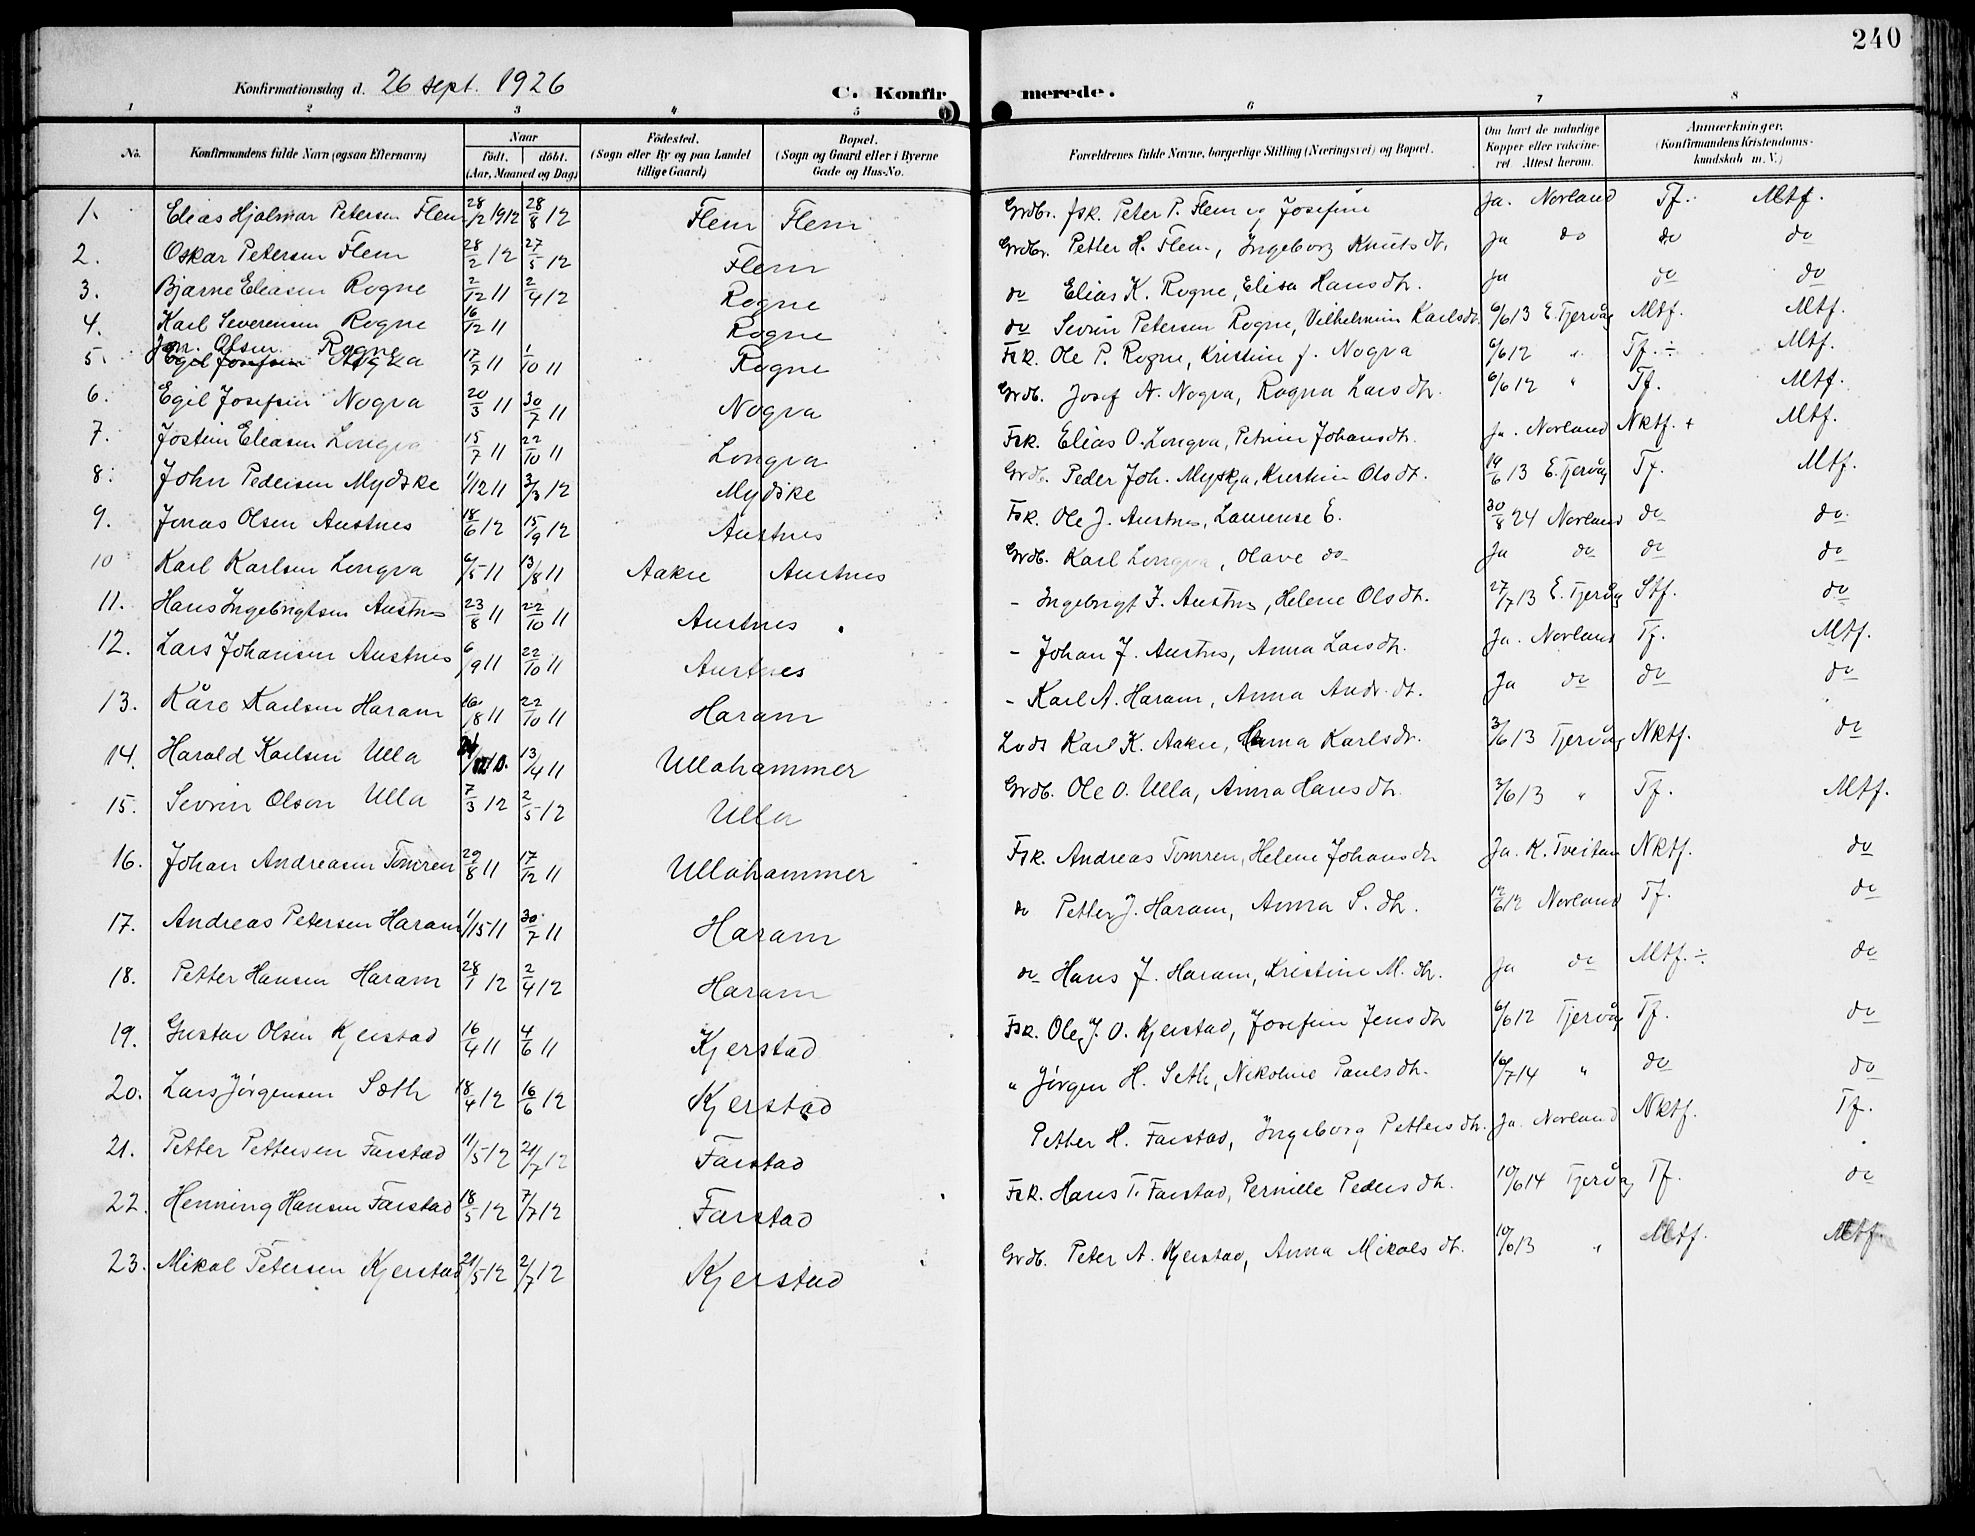 240
Konfirmationsdag d. 26 sept. 1926
C. Konfir merede.
1 2 3 4 5 6 7 8
No. Konfirmandens fulde Navn (ogsaa Efternavn) Naar födt. döbt. (Aar, Maaned og Dag) Födested. (Sogn eller By og paa Landet tillige Gaard) Bopæl. (Sogn og Gaard eller i Byerne Gade og Hus-No. Forældrenes fulde Navne, borgerlige Stilling (Næringsvei) og Bopæl. Om havt de naturlige Kopper eller vakcineret Attest herom. Anmærkninger. (Konfirmandens Kristendomskundskab m. V.)
1. Elias Hjalmar Petersen Flem 28/2 1912 28/8 12 Flem Flem Grdbr. fsk. Peter P. Flem og Josefine Ja. Norland Tf. Mtf.
2. Oskar Petersen Flem 28/2 12 27/5 12 Flem Grdbr. Petter H. Flem, Ingeborg Knutsdt. Ja do do do
3. Bjarne Eleasen Rogne 2/12 11 2/4 12 Rogne do Elias K. Rogne, Elisa Hansdt. Ja do do
4. Karl Severensen Rogne 16/12 11 Rogne do Sevrin Petersen Rogne, Vilhelmine Karlsdt. 6/6 13 E. Tjervåg Mtf. Mtf.
5. Jon. Olsen Rogne 17/7 11 1/10 11 Rogne Fsk. Ole P. Rogne, Kristine f. Nogva 6/6 12 " Tf. ÷ Mtf.
6. Egil Josefsen Nogva 20/3 11 30/7 11 Nogva Grdb. Josef N. Nogva, Ragna Larsdt. 6/6 12 " Tf. Mtf.
7. Jostein Eleasen Longva 15/7 11 22/10 11 Longva Fsk. Elias O. Longva, Petrine Johansdt. Ja. Norland Nktf. + Mtf.
8. John Pedersen Mydske 1/12 11 3/3 12 Mydske Grdb. Peder Joh. Myskja, Kristine Olsdt. 19/6 13 E. Tjervåg Tf. Mtf.
9. Jonas Olsen Austnes 18/6 12 15/9 12 Austnes Fsk. Ole J. Austnes, Laurense E. 30/8 24 Norland do do.
10 Karl Karlsen Longva 6/5 11 13/8 11 Aakre Austnes Grdb. Karl Longva, Olave do Ja do do do
11. Hans Ingebrigtsen Austnes 23/8 11 22/10 11 Austnes - Ingebrigt J. Austnes, Helene Olsdt. 27/7 13 E. Tjervåg Stf. do
12. Lars Johansen Austnes 6/9 11 22/10 11 Austnes - Johan J. Austnes, Anna Larsdt. Ja. Norland Tf. Mtf.
13. Kåre Karlsen Haram 16/8 11 22/10 11 Haram - Karl A. Haram, Anna Andr. dt. Ja do do do
14. Harald Karlsen Ulla 13/4 11 Ullahammer Lods Karl K. Aakre, Karlsdt. 3/6 13 Tjervåg Nktf. do
15. Sevrin Olson Ulla 7/3 12 2/5 12 Ulla Grdb. Ole O. Ulla, Anna Hansdt. 3/6 13 " Tf. Mtf.
16. Johan Andreasen Tomren 29/8 11 17/12 11 Ullahammer Fsk. Andreas Tomren, Helene Johansdt Ja. K. Tveitan Nktf. do
17. Andreas Petersen Haram 1/5 11 30/7 11 Haram do Petter J. Haram, Anna S. dt. 12/6 12 Norland Tf. do
18. Petter Hansen Haram 28/1 12 2/4 12 Haram do Hans J. Haram, Kristine M. dt. Ja do Mtf. ÷ do
19. Gustav Olsen Kjerstad 16/4 11 4/6 11 Kjerstad Fsk. Ole J. O. Kjerstad, Josefine Jensdt 6/6 12 Tjervåg Tf. do
20. Lars Jörgensen Sæth 18/4 12 16/6 12 Kjerstad " Jörgen H. Seth, Nikoline Paulsdt. 10/7 14 " do do
21. Petter Pettersen Farstad 11/5 12 21/7 12 Farstad Petter H. Farstad, Ingeborg Pettersdt. Ja. Norland Nktf. Tf.
22. Henning Hansen Farstad 18/5 12 7/7 12 Farstad Fsk. Hans T. Farstad, Pernille Pedersdt. 10/6 14 Tjervåg Tf. do
23. Mikal Petersen Kjerstad 21/5 12 2/7 12 Kjerstad Grdb. Peter A. Kjerstad, Anna Mikalsdt. 10/6 13 " Mtf. Mtf.